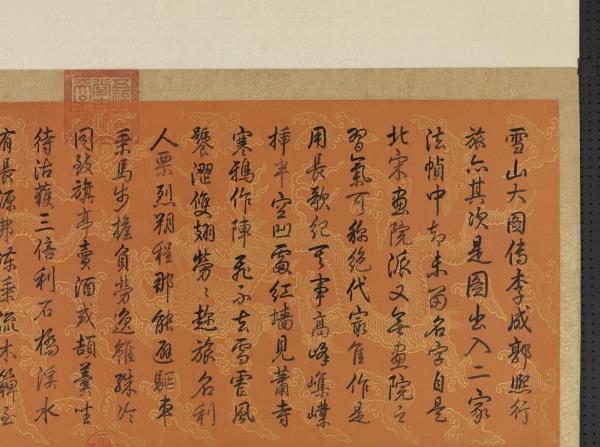 雪山大圖傳李成郭熙行
旅亦其次是圖出入二家
法幀中却未留名字自是
北宋畫院派又無畫院之
習氣可稱絶代最佳作是
用長歌紀事高峰嶪
插半空凹處紅墻見蕭寺
寒鴉作陣飛不去雪虐風
饕澀雙翅勞〻趁旅名利
人栗烈朔程那能避驅車
乘馬步擔負勞逸雖殊冷
同致旗亭賣酒或頡羹坐
待沽獲三倍利石橋溪水
有長源弗凍乘流木簰至